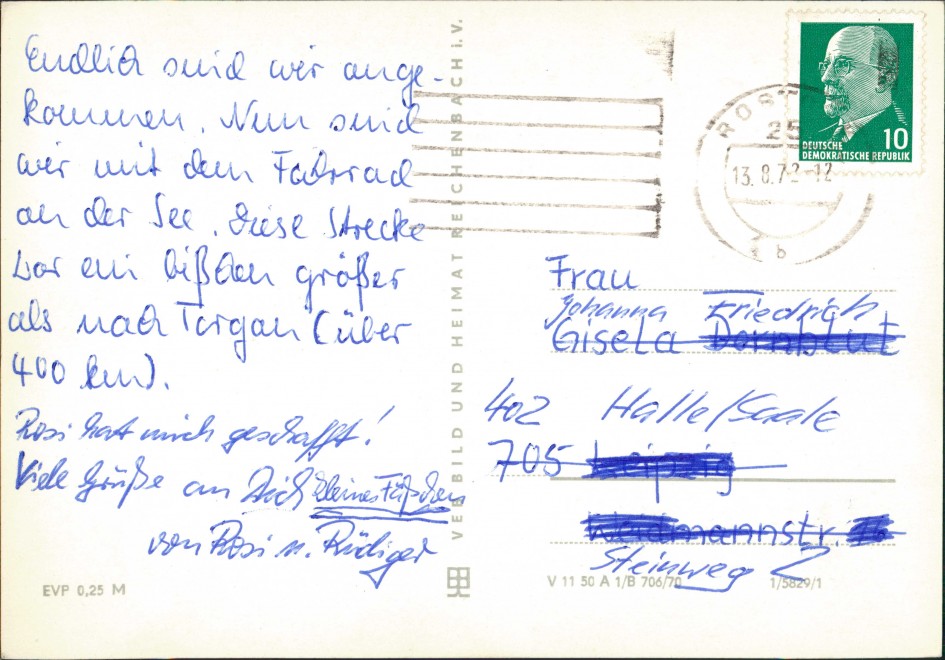 Endlich sind wir ange-
kommen. Nun sind
wir mit dem Fahrrad
an der See. Diese Strecke
war ein bißchen größer
als nach Torgau (über
400 km).
Rosi hat mich geschafft!
Viele Grüße an Dich kleines Füßchen
von Rosi u. Rüdiger
EVP 0,25 M
VEB BILD UND HEIMAT REICHENBACH i. V.
DEUTSCHE
DEMOKRATISCHE REPUBLIK
10
ROST
25
13.8.72-12
b
Frau
Johanna Friedrich
Gisela Dornblut
402 Halle/Saale
705 Leipzig
Weidmannstr. 16
Steinweg 2
V 11 50 A 1/B 706/70 1/5829/1